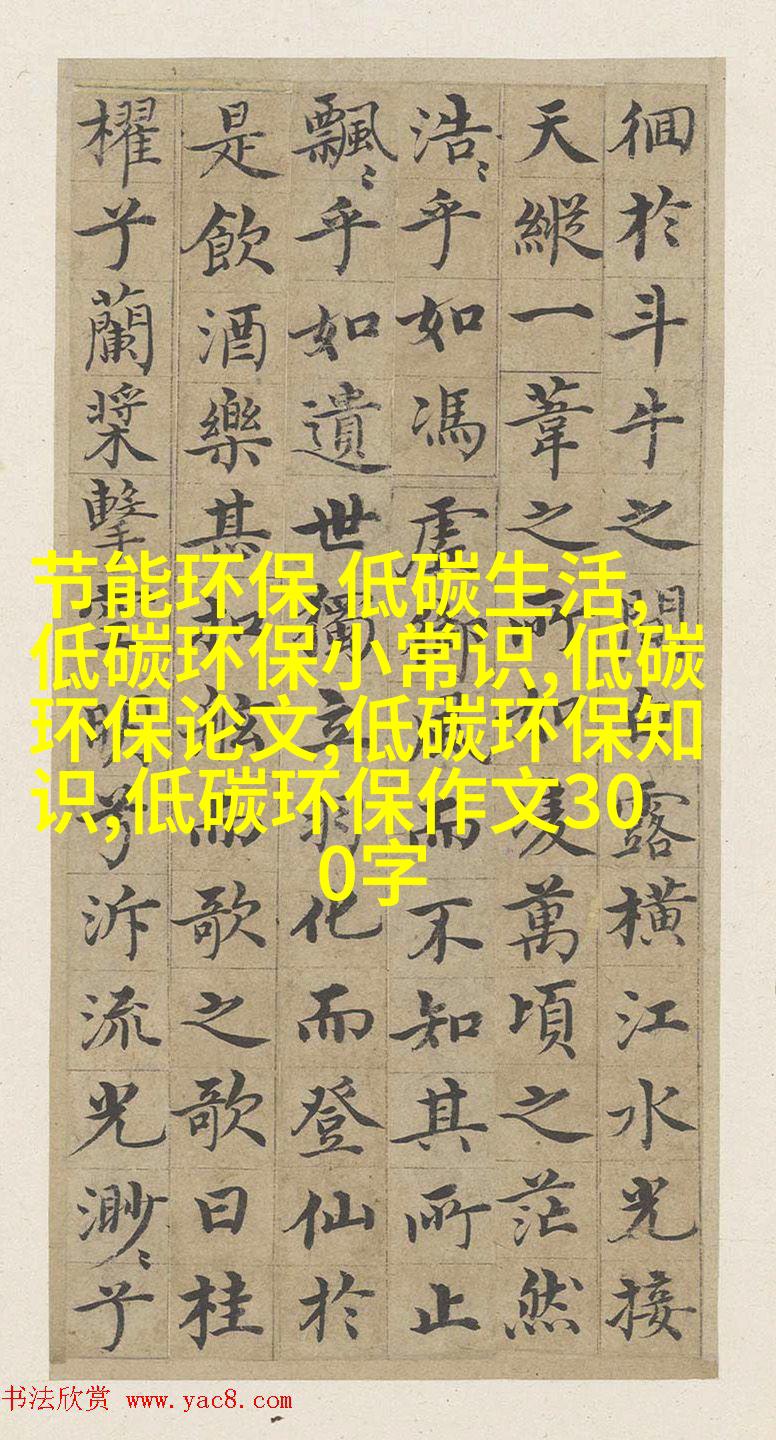 佪於斗牛之間白露橫江水光接
天縱一葦之所如凌萬頃之茫然
浩〻乎如馮虛御風而不知其所止
飄〻乎如遺世獨立羽化而登仙於
是飲酒樂甚扣舷而歌之歌曰桂
櫂兮蘭槳擊空明兮泝流光渺〻兮
节能环保,低碳生活,
低碳环保小常识,低碳
环保论文,低碳环保知
识,低碳环保作文30
0字
书法欣赏 www.yac8.com